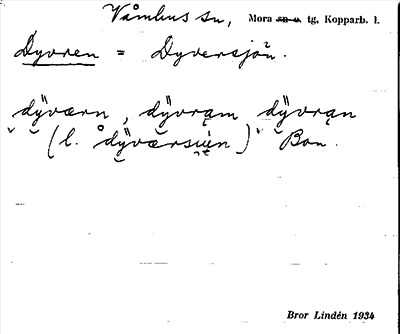 Våmhus sn, Mora sn o. tg, Kopparb. l.
Dyvren = Dyversjön.
dÿværn, dÿvrąm dÿvrąn
(l. å dÿværsiụ́ẹn) Bon.
Bror Lindén 1934